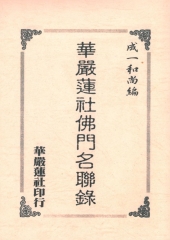 成一和尚編
華嚴蓮社佛門名聯錄
華嚴蓮社印行